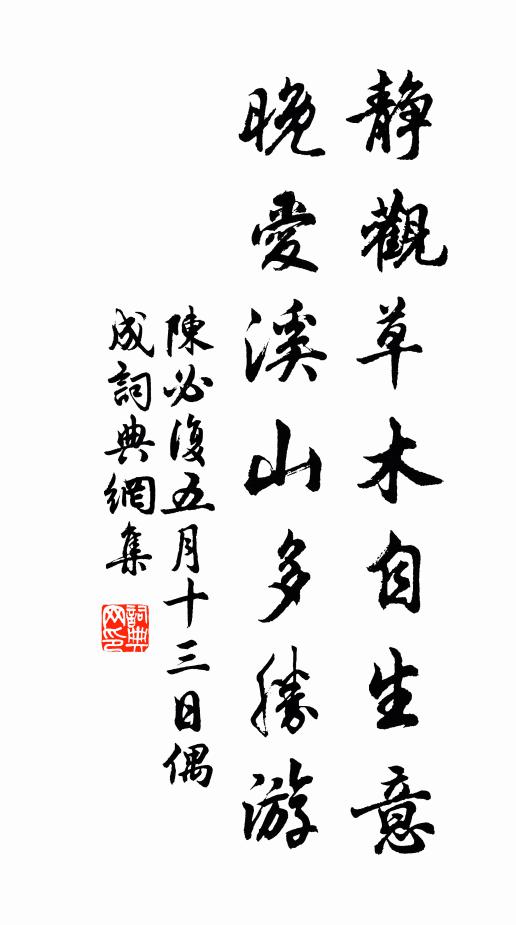 靜觀草木自生意
晚愛溪山多勝游
陳必復五月十三日偶
成詞典網集
詞典
网印